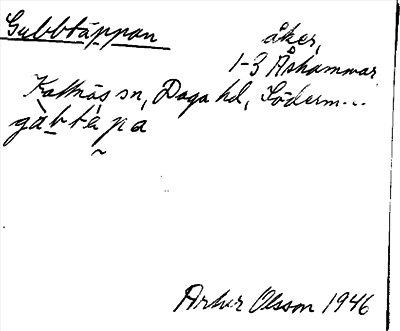 Gubbtäppan åker,
1-3 Åshammar
Kattnäs sn, Daga hd, Söderm...
gàbtépa
Artur Olsson 1946